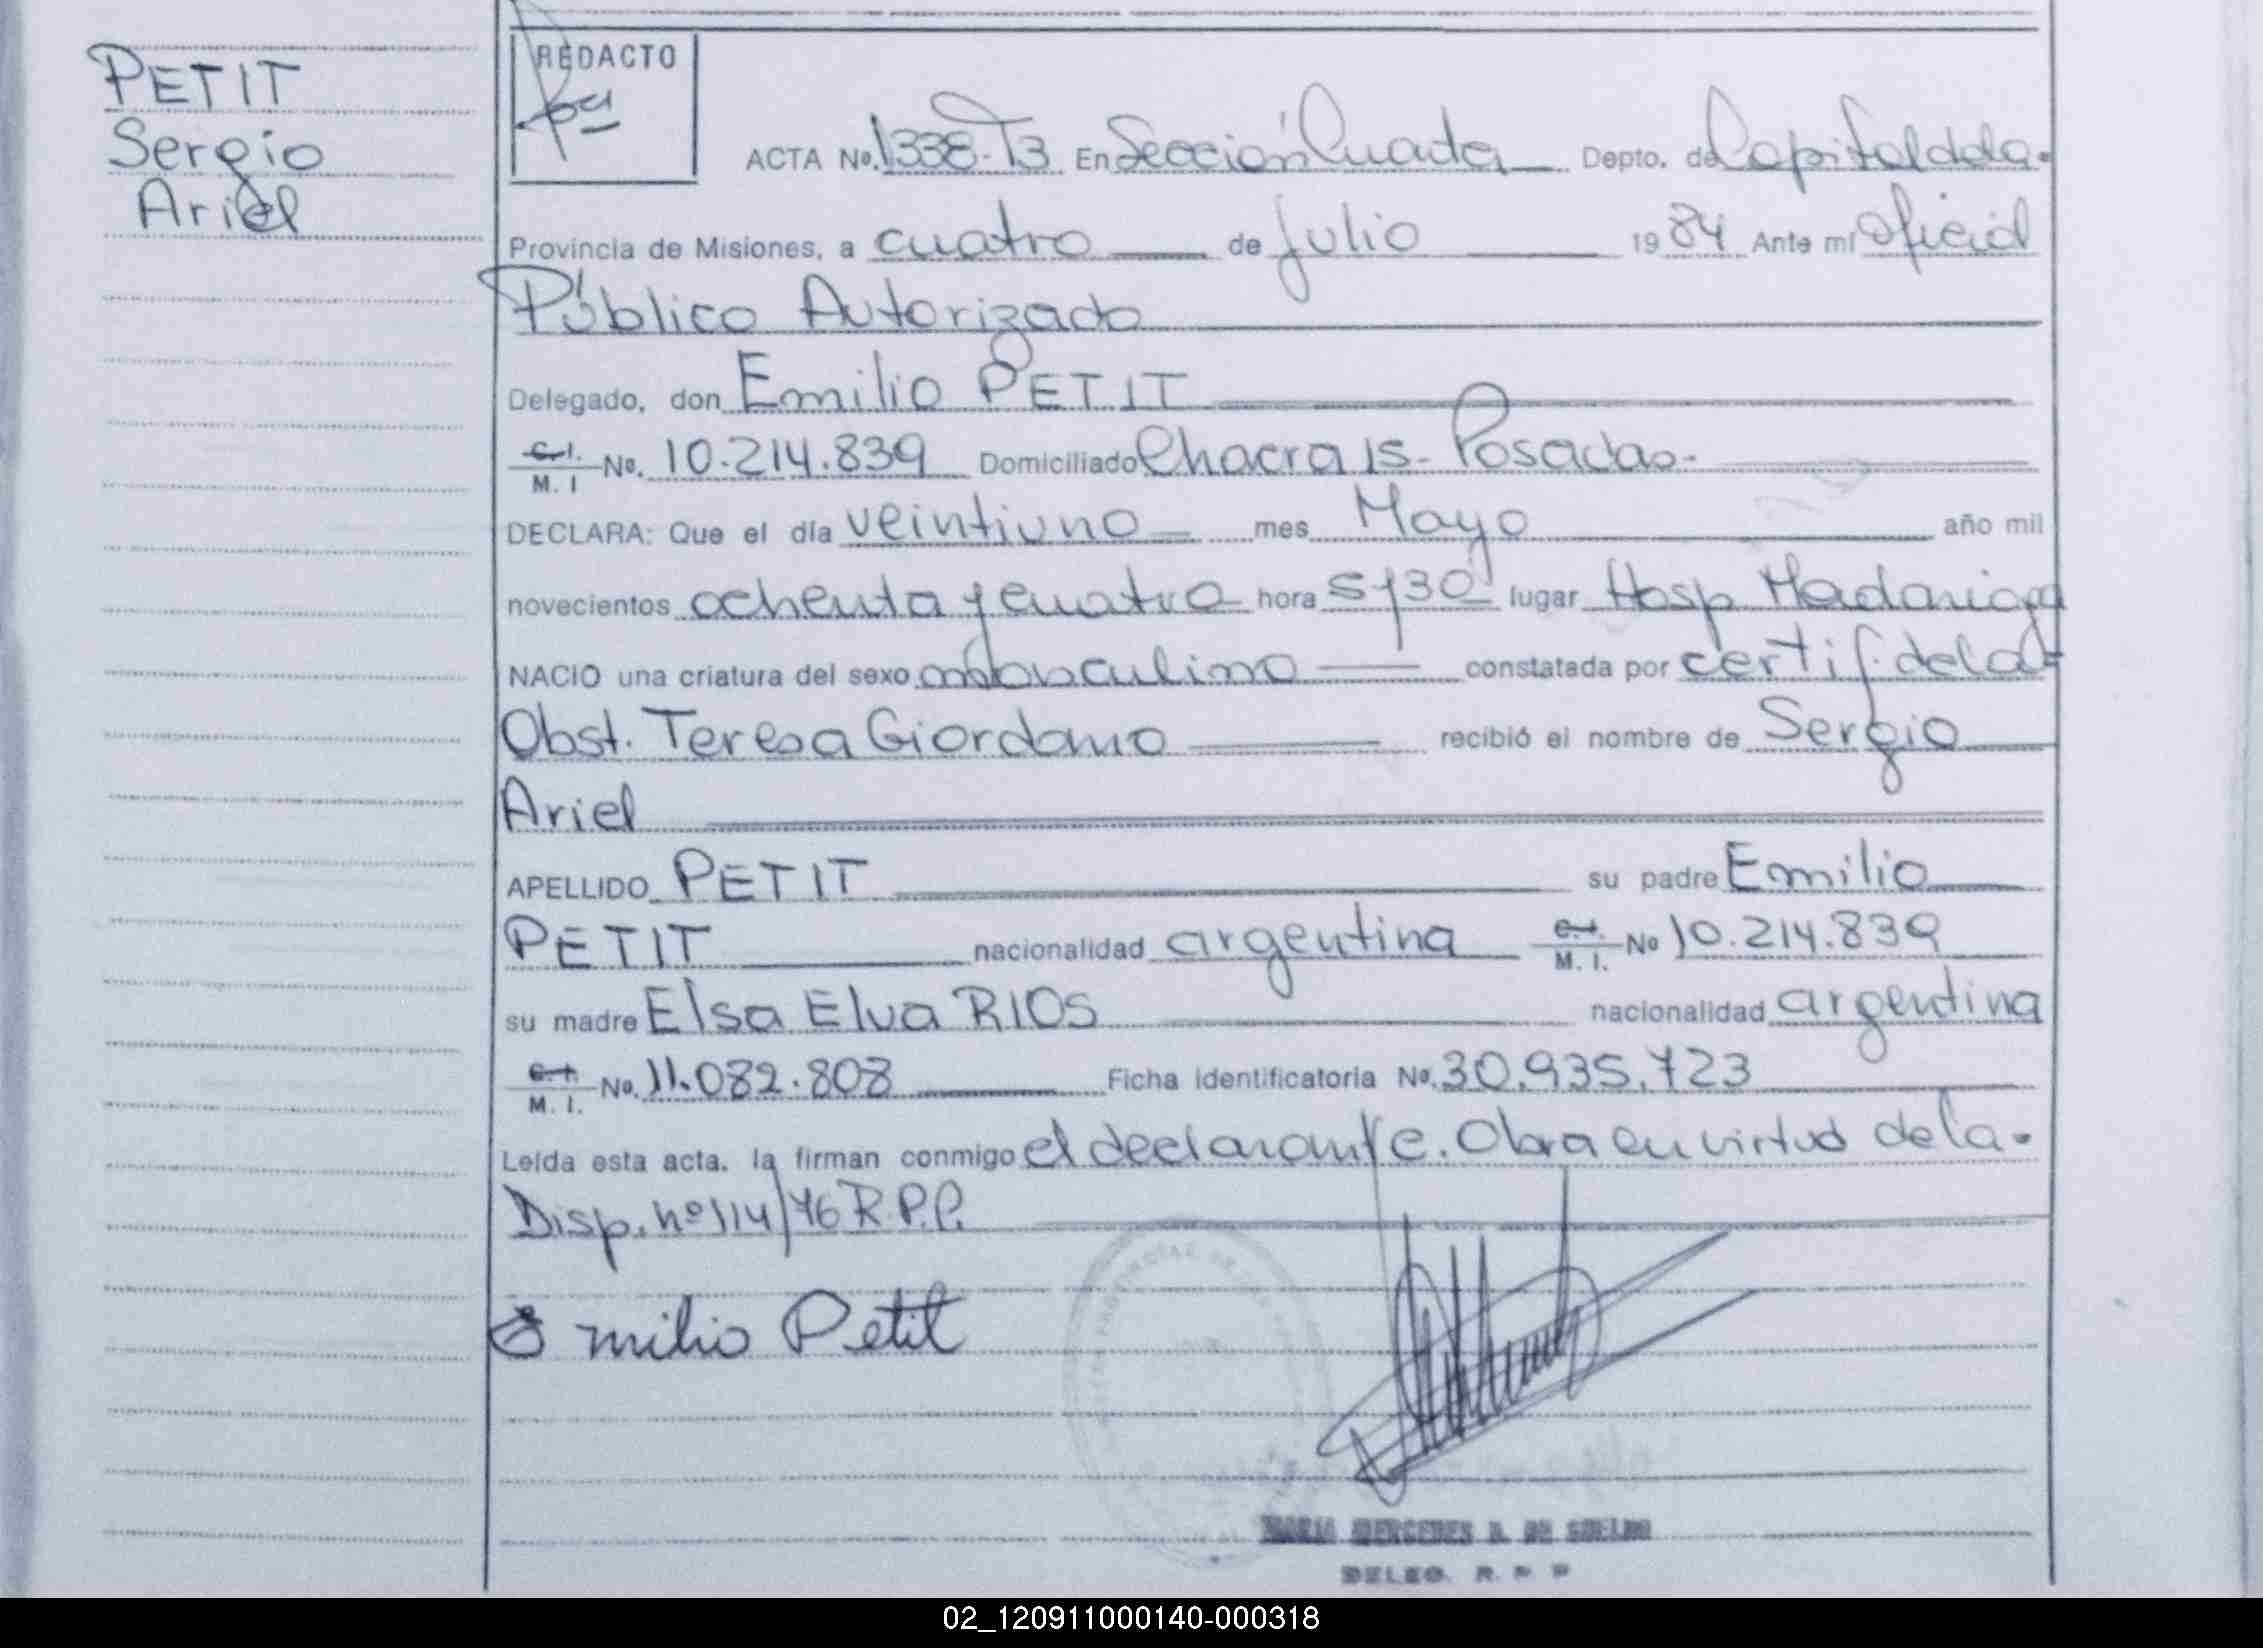 PETIT
Sergio
Ariel
REDACTO
ACTA No. 1338-T3 En Sección Cuarta Depto. de Capital de la
Provincia de Misiones, a cuatro de julio 1984 Ante mí Oficial
Público Autorizado
Delegado, don Emilio PETIT
C.I.
M. I No. 10.214.839 Domiciliado Chacra 15- Posadas.
DECLARA: Que el día veintiuno mes Mayo año mil
novecientos ochenta y cuatro hora 5y30 lugar Hosp Madariaga
NACIO una criatura del sexo masculino constatada por certif. de la
Obst. Teresa Giordano recibió el nombre de Sergio
Ariel
APELLIDO PETIT su padre Emilio
PETIT nacionalidad argentina C.I. M. I. No 10.214.839
su madre Elsa Elva RIOS nacionalidad argentina
C.I.
M. I. No. 11.082.808 Ficha identificatoria No. 30.935.723
Leída esta acta, la firman conmigo el declarante. Obra en virtud de la
Disp. nº 114/76 R.P.P.
Emilio Petit
MARIA MERCEDES DE
DELEG. R. P P
02_120911000140-000318